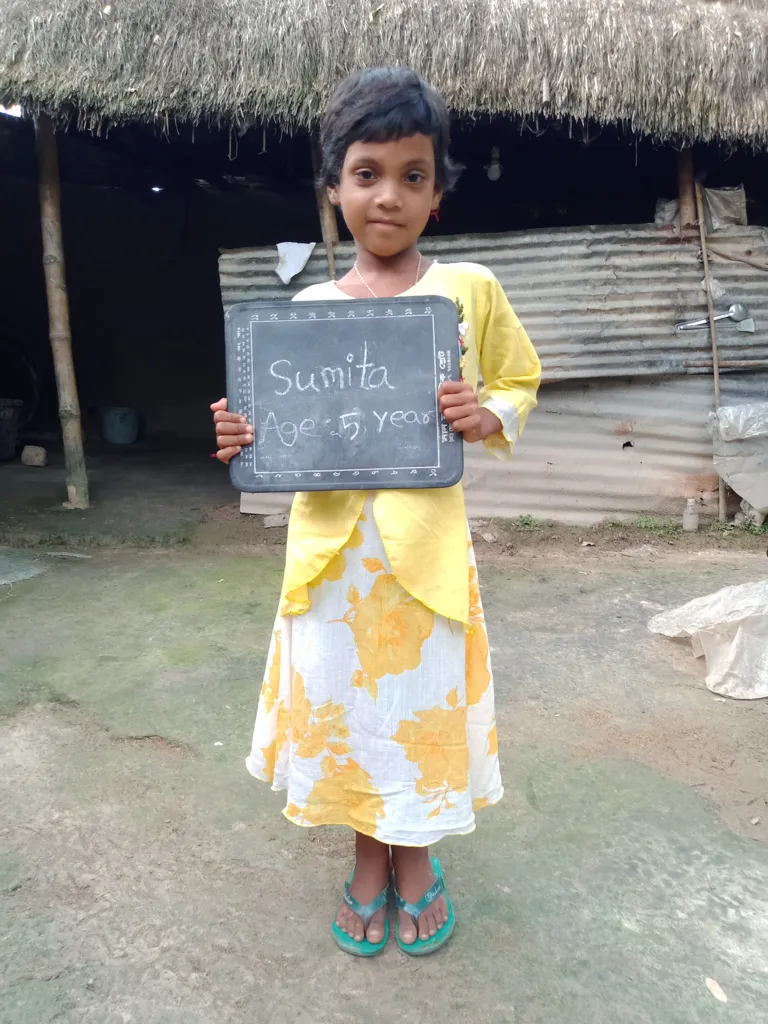 Sumita
Age : 5 year